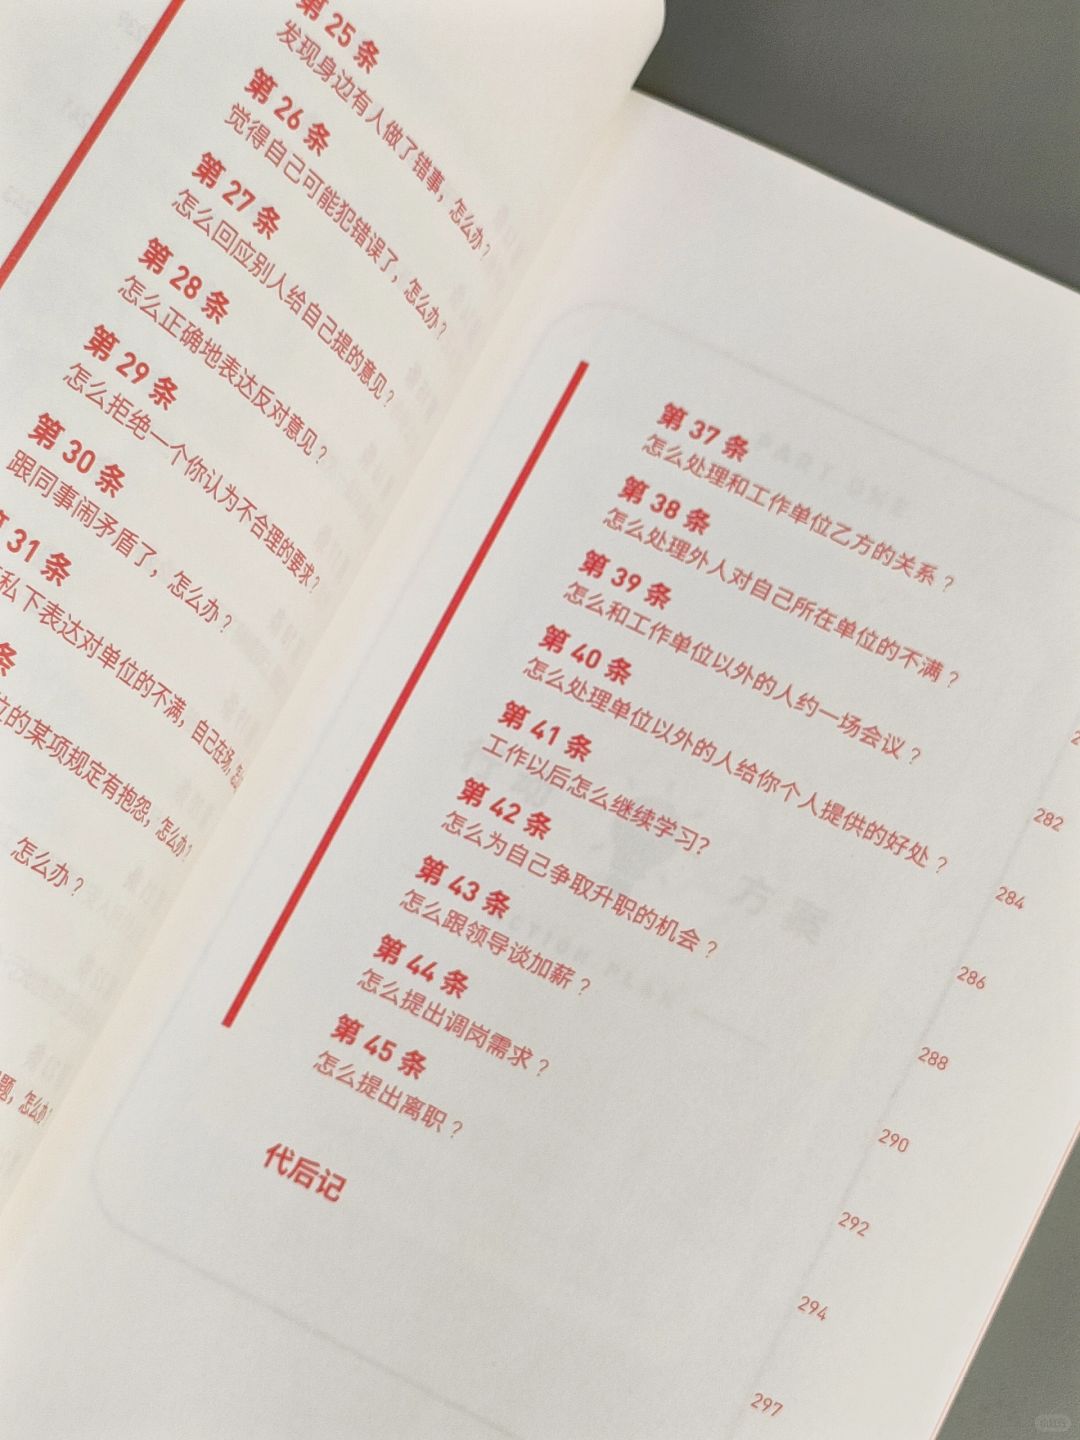 第 25 条
发现身边有人做了错事，怎么办？
第 26 条
觉得自己可能犯错误了，怎么办？
第 27 条
怎么回应别人给自己提的意见？
第 28 条
怎么正确地表达反对意见？
第 29 条
怎么拒绝一个你认为不合理的要求？
第 30 条
跟同事闹矛盾了，怎么办？
第 31 条
私下表达对单位的不满，自己在场，怎
条
位的某项规定有抱怨，怎么办？
怎么办？
题，怎么办？
第 37 条
怎么处理和工作单位乙方的关系？
第 38 条
怎么处理外人对自己所在单位的不满？
第 39 条
怎么和工作单位以外的人约一场会议？
第 40 条
怎么处理单位以外的人给你个人提供的好处？
282
第 41 条
工作以后怎么继续学习？
284
第 42 条
怎么为自己争取升职的机会？
286
第 43 条
怎么跟领导谈加薪？
288
第 44 条
怎么提出调岗需求？
290
第 45 条
怎么提出离职？
292
294
代后记
297